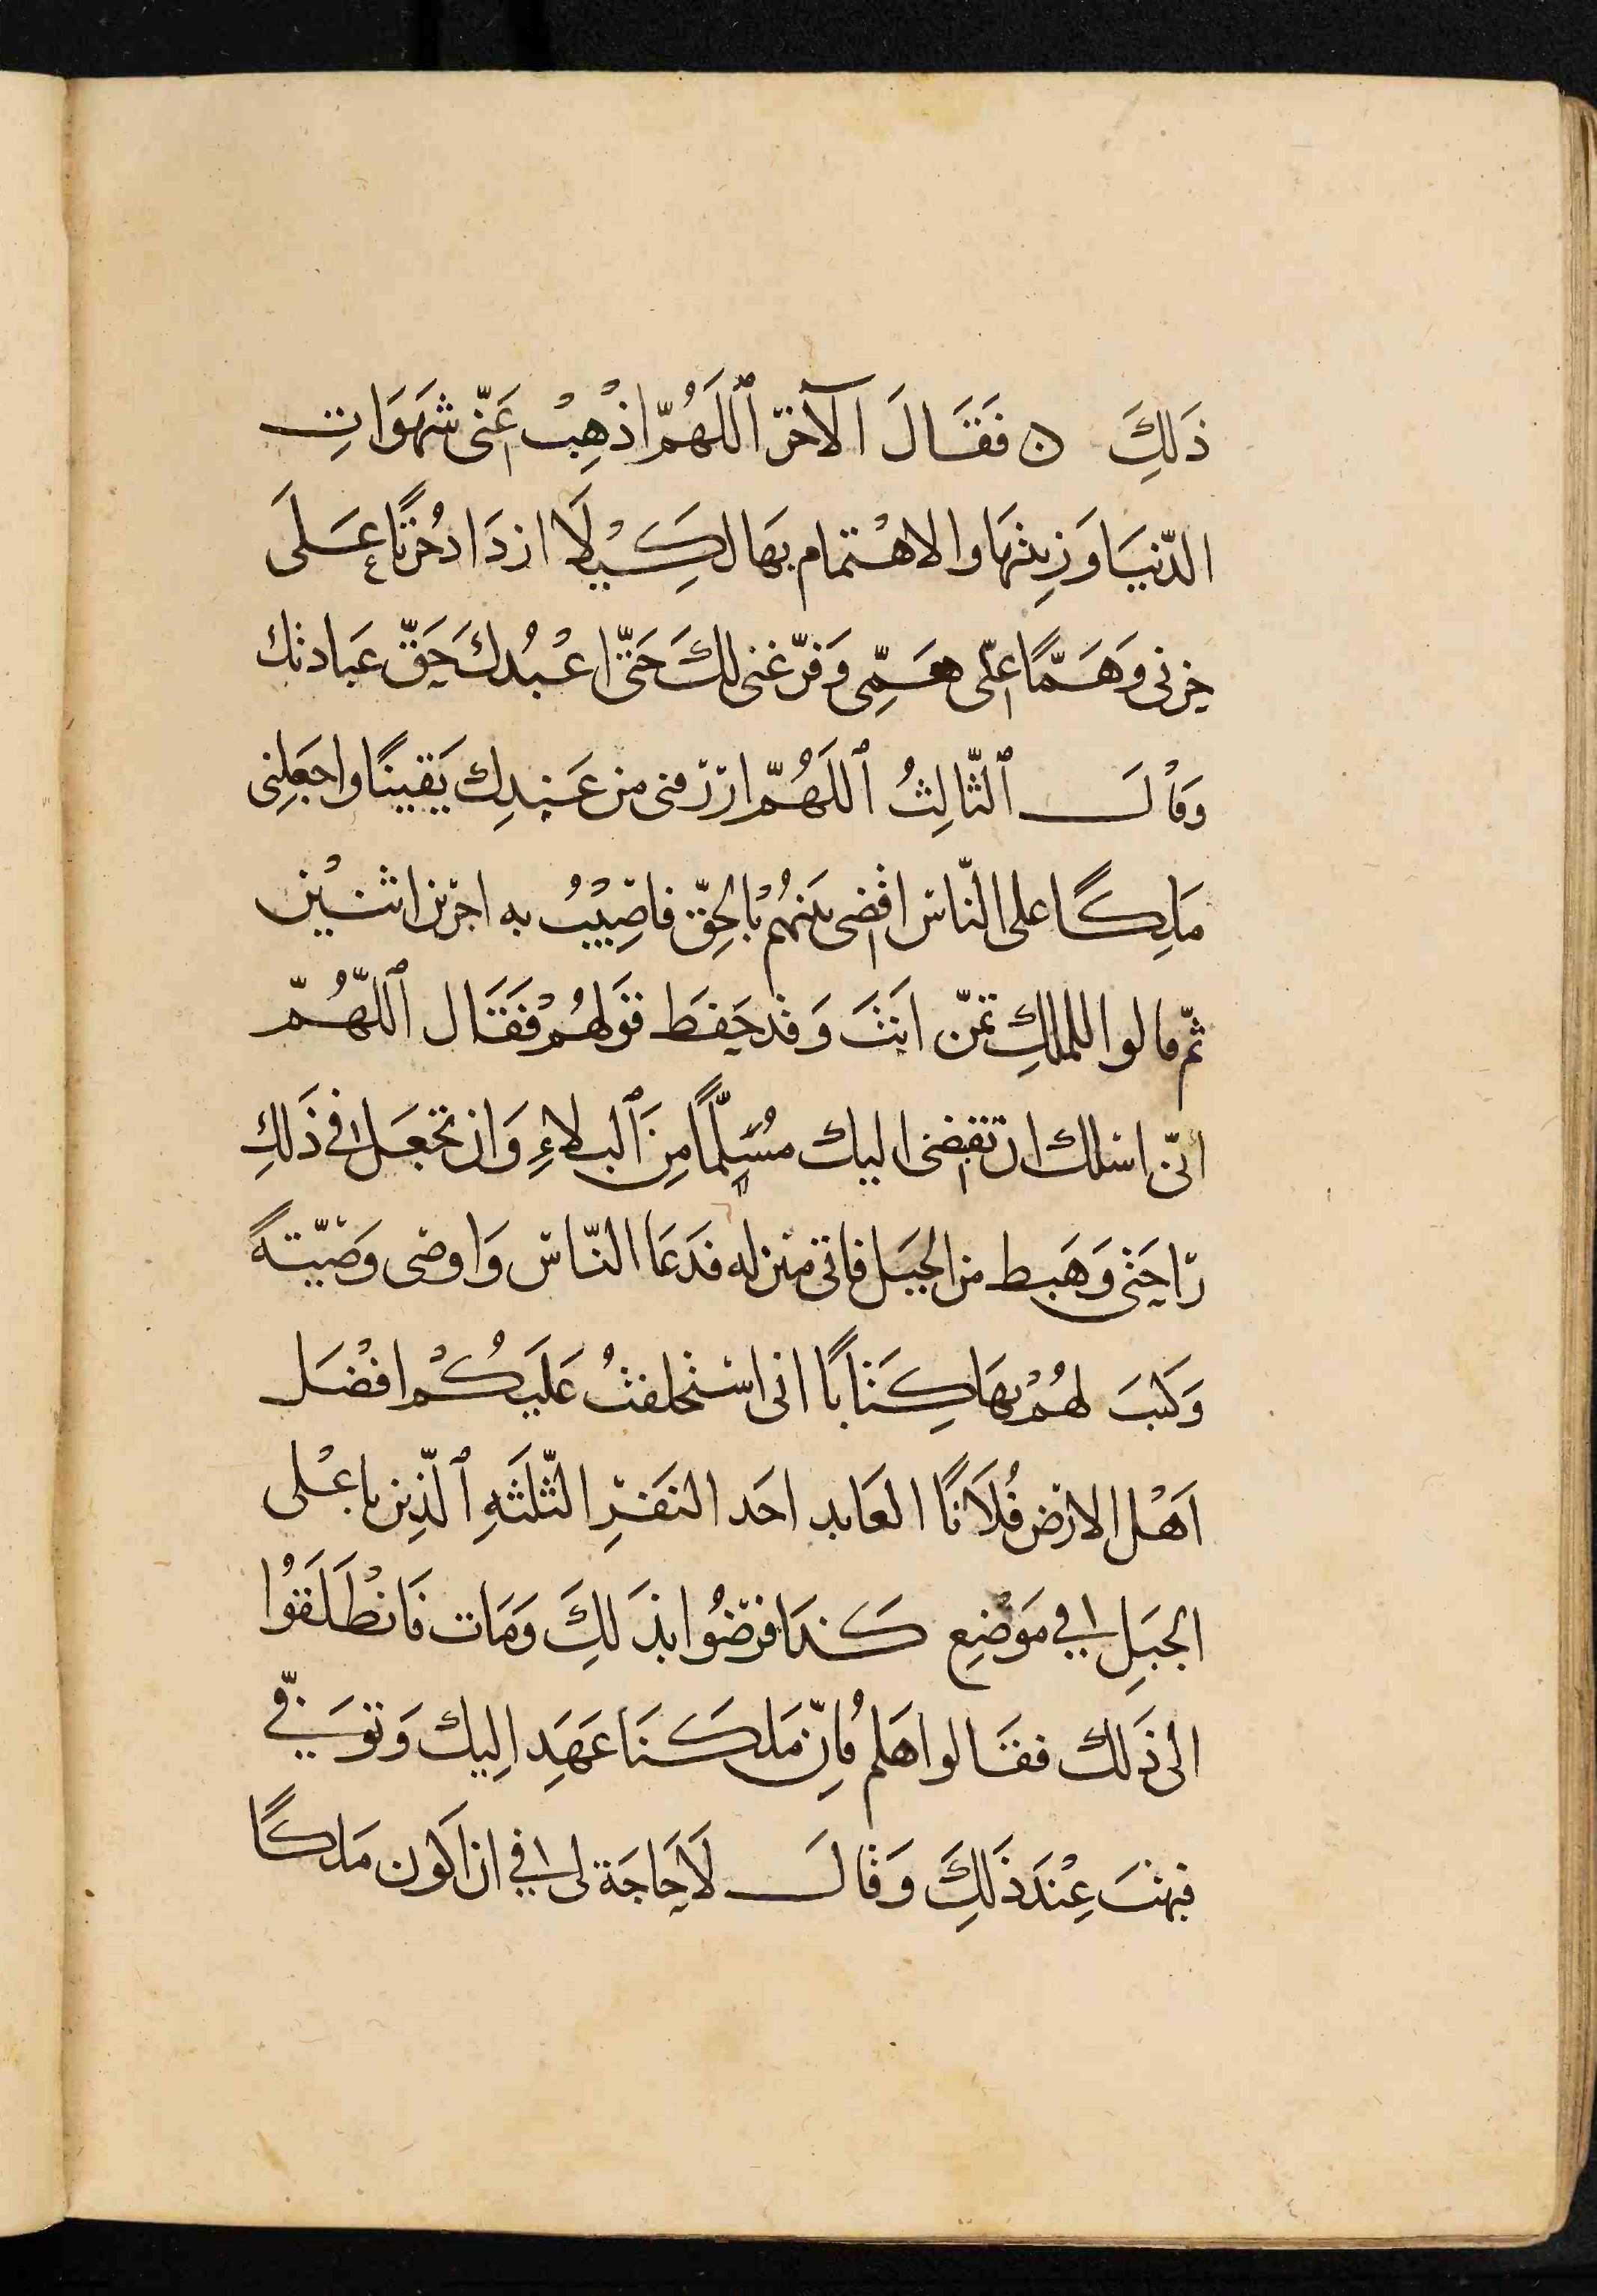 ذَلِكَ ن فَقَالَ الآخر ٱللَهُمّ اذْهِبْ عَنّى شَهَوَاتِ
الدّنيَا وَزِينتهَا والاهْتمام بهَا لكِيْلَا ازدَادحُزنًا عَلَى
حزنى وَهَمًّا على هَمِّى وَفرّغنى لكَ حَتّى اعْبُدكَ حَقّ عبَادتك
وَقاْلَ ٱلثّالِثُ ٱللَهُمّ ارزقنى من عَندِك يَقينًا واجعَلِنى
مَلِكًا على النّاس اقضى بَينهُمْ بالحِقّ فاصِيْبُ به اجرين اثنيْن
ثمّ قالوا للملكِ تمنّ انَتَ وَقد حَفظ قوَلهُمْ فَقَال ٱللّهُمّ
انّى اسٔلك ان تقبضنى اليك مُسَلّمًا مِنَ ٱلبلاءِ وَان تجعَل فى ذَلكِ
رَاحَتى وَهَبط من الجبَل فاتى منزله فدَعَا النّاس وَاوصى وَصّيتهً
وَكتبَ لهُمْ بهَا كِتَابًا انى استخلفتُ عَليَكُمْ افضَل
اَهْل الارض فُلَانًا العَابد احَد النفَرِ الثّلثَهِ ٱلّذِين باعْلى
الجبَلِ فى مَوْضِعِ كذَا فرَضُوا بذَلكَ وَمَات فَانْطَلَقوُا
الى ذَلك فقَالوا هَلم فُاِنّ مَلكنَا عَهَدِ اِليكَ وَتوَفّى
فبهتَ عِنْدَ ذَلكَ وَقالَ لَا حَاجَة لى فى ان اَكون مَلكًا